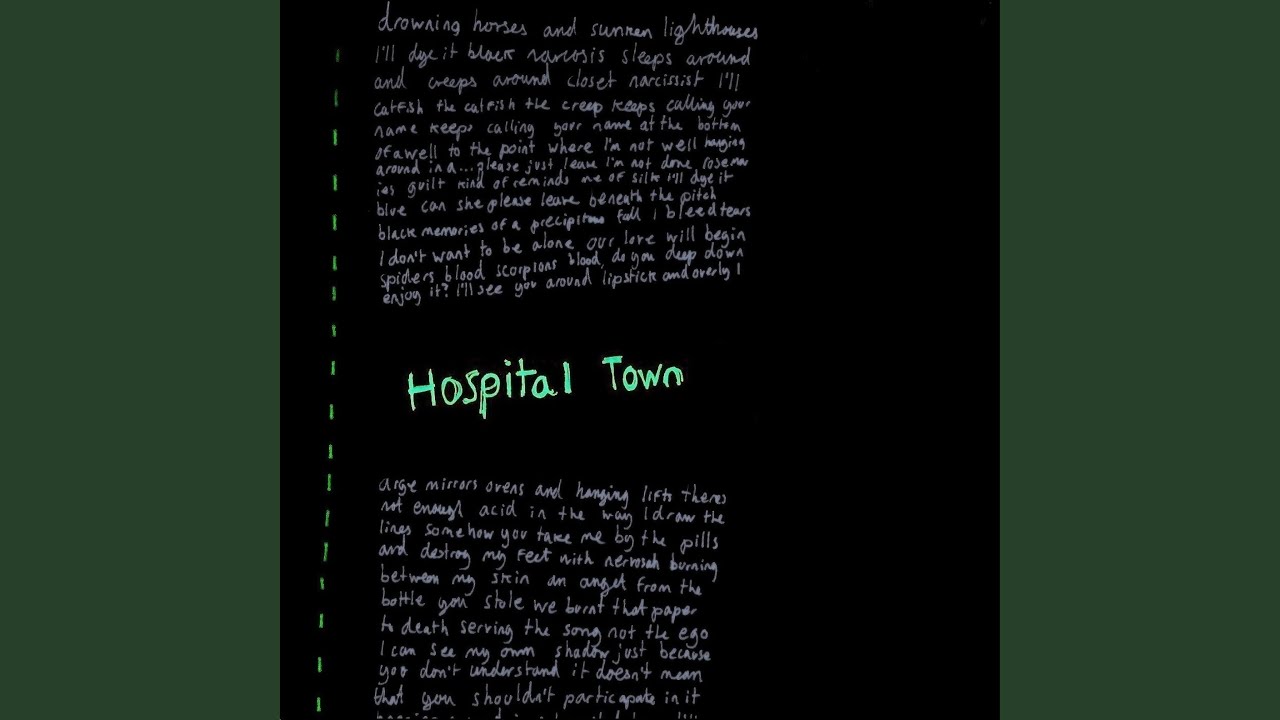 drowning horses and sunken lighthouses
I'll dye it black narcosis sleeps around
and creeps around closet narcissist I'll
catfish the catfish the creep keeps calling your
name keeps calling your name at the bottom
of a well to the point where I'm not well hanging
around in a... please just leave I'm not done rosemar
ies guilt kind of reminds me of silk I'll dye it
blue can she please leave beneath the pitch
black memories of a precipitous fall I bleed tears
I don't want to be alone our love will begin
spiders blood scorpions blood, do you deep down
enjoy it? I'll see you around lipstick and overly I
Hospital Town
arge mirrors ovens and hanging lifts theres
not enough acid in the way I draw the
lines somehow you take me by the pills
and destroy my feet with burning
between my skin an angel from the
bottle you stole we burnt that paper
to death serving the song not the ego
I can see my own shadow just because
you don't understand it doesn't mean
that you shouldn't particapate in it